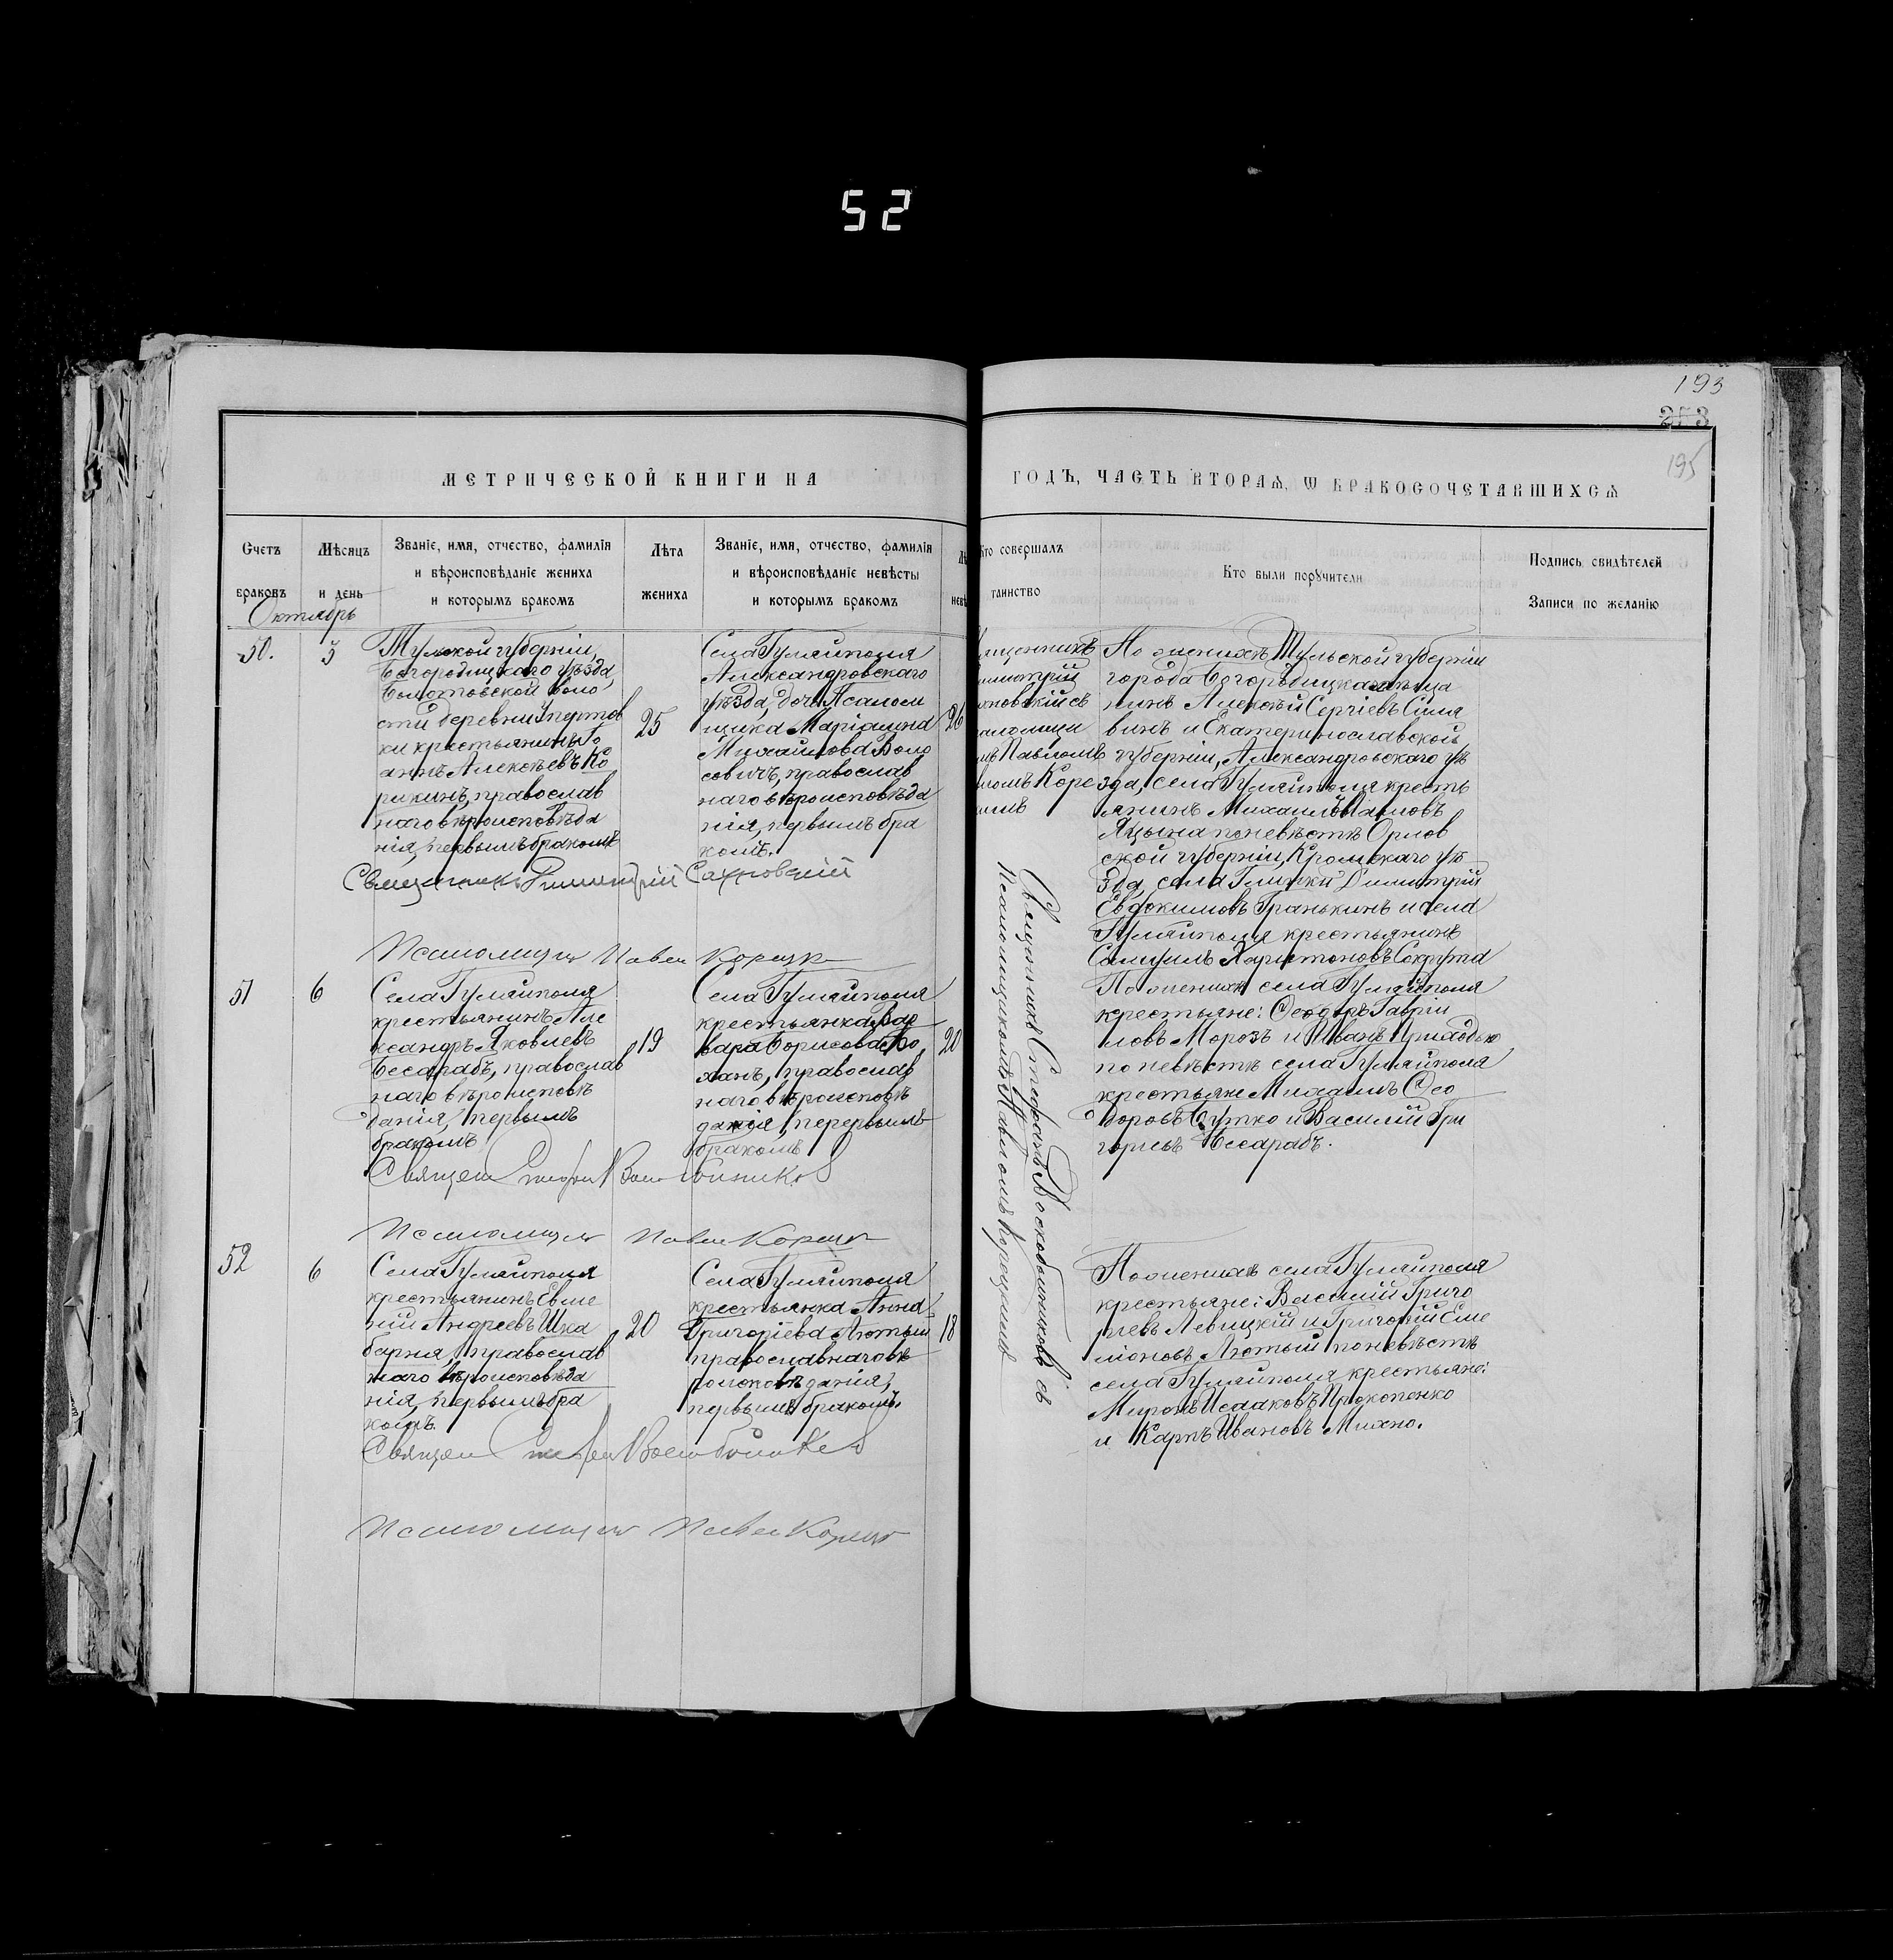 52
193
253
195
МЕТРИЧЕСКОЙ КНИГИ НА
ГОДЪ, ЧАСТЬ ВТОРАЯ, Ѡ БРАКОСОЧЕТАВШИХСЯ
Счетъ браковъ
Мѣсяцъ и день
Званіе, имя, отчество, фамилія
и вѣроисповѣданіе жениха
и которымъ бракомъ
Лѣта
жениха
Званіе, имя, отчество, фамилія
и вѣроисповѣданіе невѣсты
и которымъ бракомъ
Кто совершалъ
таинство
Кто были порꙋчители
Подпись свидѣтелей
Записи по желанію
Октябрь
50.
5
Тульской губерніи,
Богородицкаго уѣзда,
воло
сти деревни
ки крестьянинъ Іо
аннъ Алексѣевъ Ко
рикинъ, православ
наго вѣроисповѣда
нія, первымъ бракомъ
25
Села Гуляйполя
Александровскаго
уѣзда, дочь Псаломщика
Михайлова Воло
совичъ, православ
наго вѣроисповѣда
нія, первымъ бра
комъ.
26
Священникъ Димитрій Сахновскій
Псаломщикъ Павел Корецкій
По женихѣ Тульской губерніи
города Богородицка
нинъ Алексѣй Сергіевъ Силя
винъ и Екатеринославской
губерніи, Александровскаго уѣ
зда, села Гуляйполя кресть
янинъ Михаилъ Павловъ
Яцына по невѣстѣ Орлов
ской губерніи, Кромскаго уѣ
зда, села Глинки Димитрій
Евдокимовъ Гранькинъ и села
Гуляйполя крестьянинъ
Самуилъ Харитоновъ Сокрута
51
6
Села Гуляйполя
крестьянинъ Але
ксандръ Яковлевъ
Бессарабъ, православ
наго вѣроисповѣ
данія, первымъ
бракомъ
19
Села Гуляйполя
крестьянка Вар
вара Борисова Во
ханъ, православ
наго вѣроисповѣ
данія, перервымъ
бракомъ
20
Священ Стефан Воскобойников
Псаломщик Павел Корецкій
По женихѣ села Гуляйполя
крестьяне: Ѳеодоръ Гаврии
ловъ Морозъ и Иванъ Приходько
по невѣстѣ села Гуляйполя
крестьяне Михаилъ Ѳео
доровъ Бутко и Василій Гри
горьевъ Бессарабъ.
Священникъ Стефанъ Воскобойниковъ съ
псаломщикомъ Павломъ Корецкимъ
52
6
Села Гуляйполя
крестьянинъ Евме
ній Андреевъ Шка
барня, православ
наго вѣроисповѣда
нія, первымъ бра
комъ.
20
Села Гуляйполя
крестьянка Анна
Григоріева Лютый
православнаго вѣ
роисповѣданія,
первымъ бракомъ.
18
Священ Стефан Воскобойников
Псаломщик Павел Корецкій
По женихѣ села Гуляйполя
крестьяне: Василій Григо
ріевъ Левицкій и Григорій Еме
ліоновъ Лютый по невѣстѣ
села Гуляйполя крестьяне:
Миронъ Исааковъ Прокопенко
и Карпъ Ивановъ Махно.